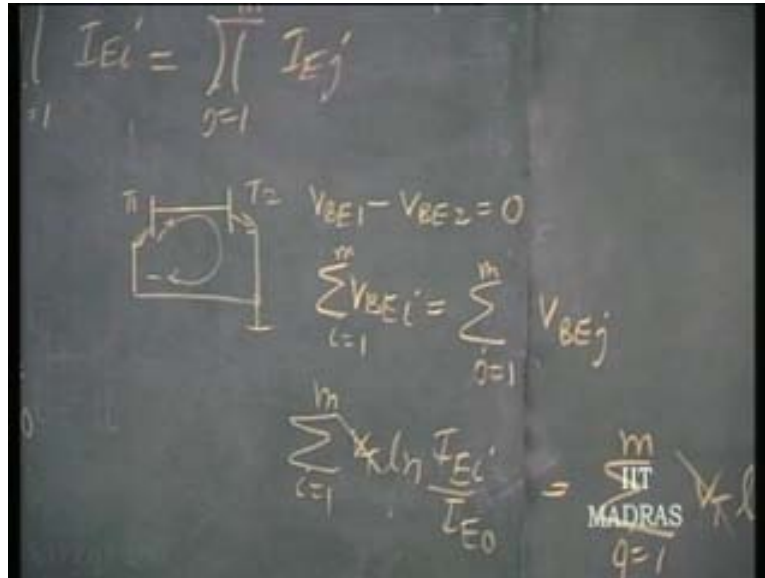 I_{Ei} = ∏_{j=1}^{m} I_{Ej}
=1
T1 T2 V_{BE1} - V_{BE2} = 0
∑_{i=1}^{m} V_{BEi} = ∑_{j=1}^{m} V_{BEj}
∑_{i=1}^{m} V_T ln I_{Ei}/I_{E0} = ∑_{j=1}^{m} V_T l
IIT
MADRAS